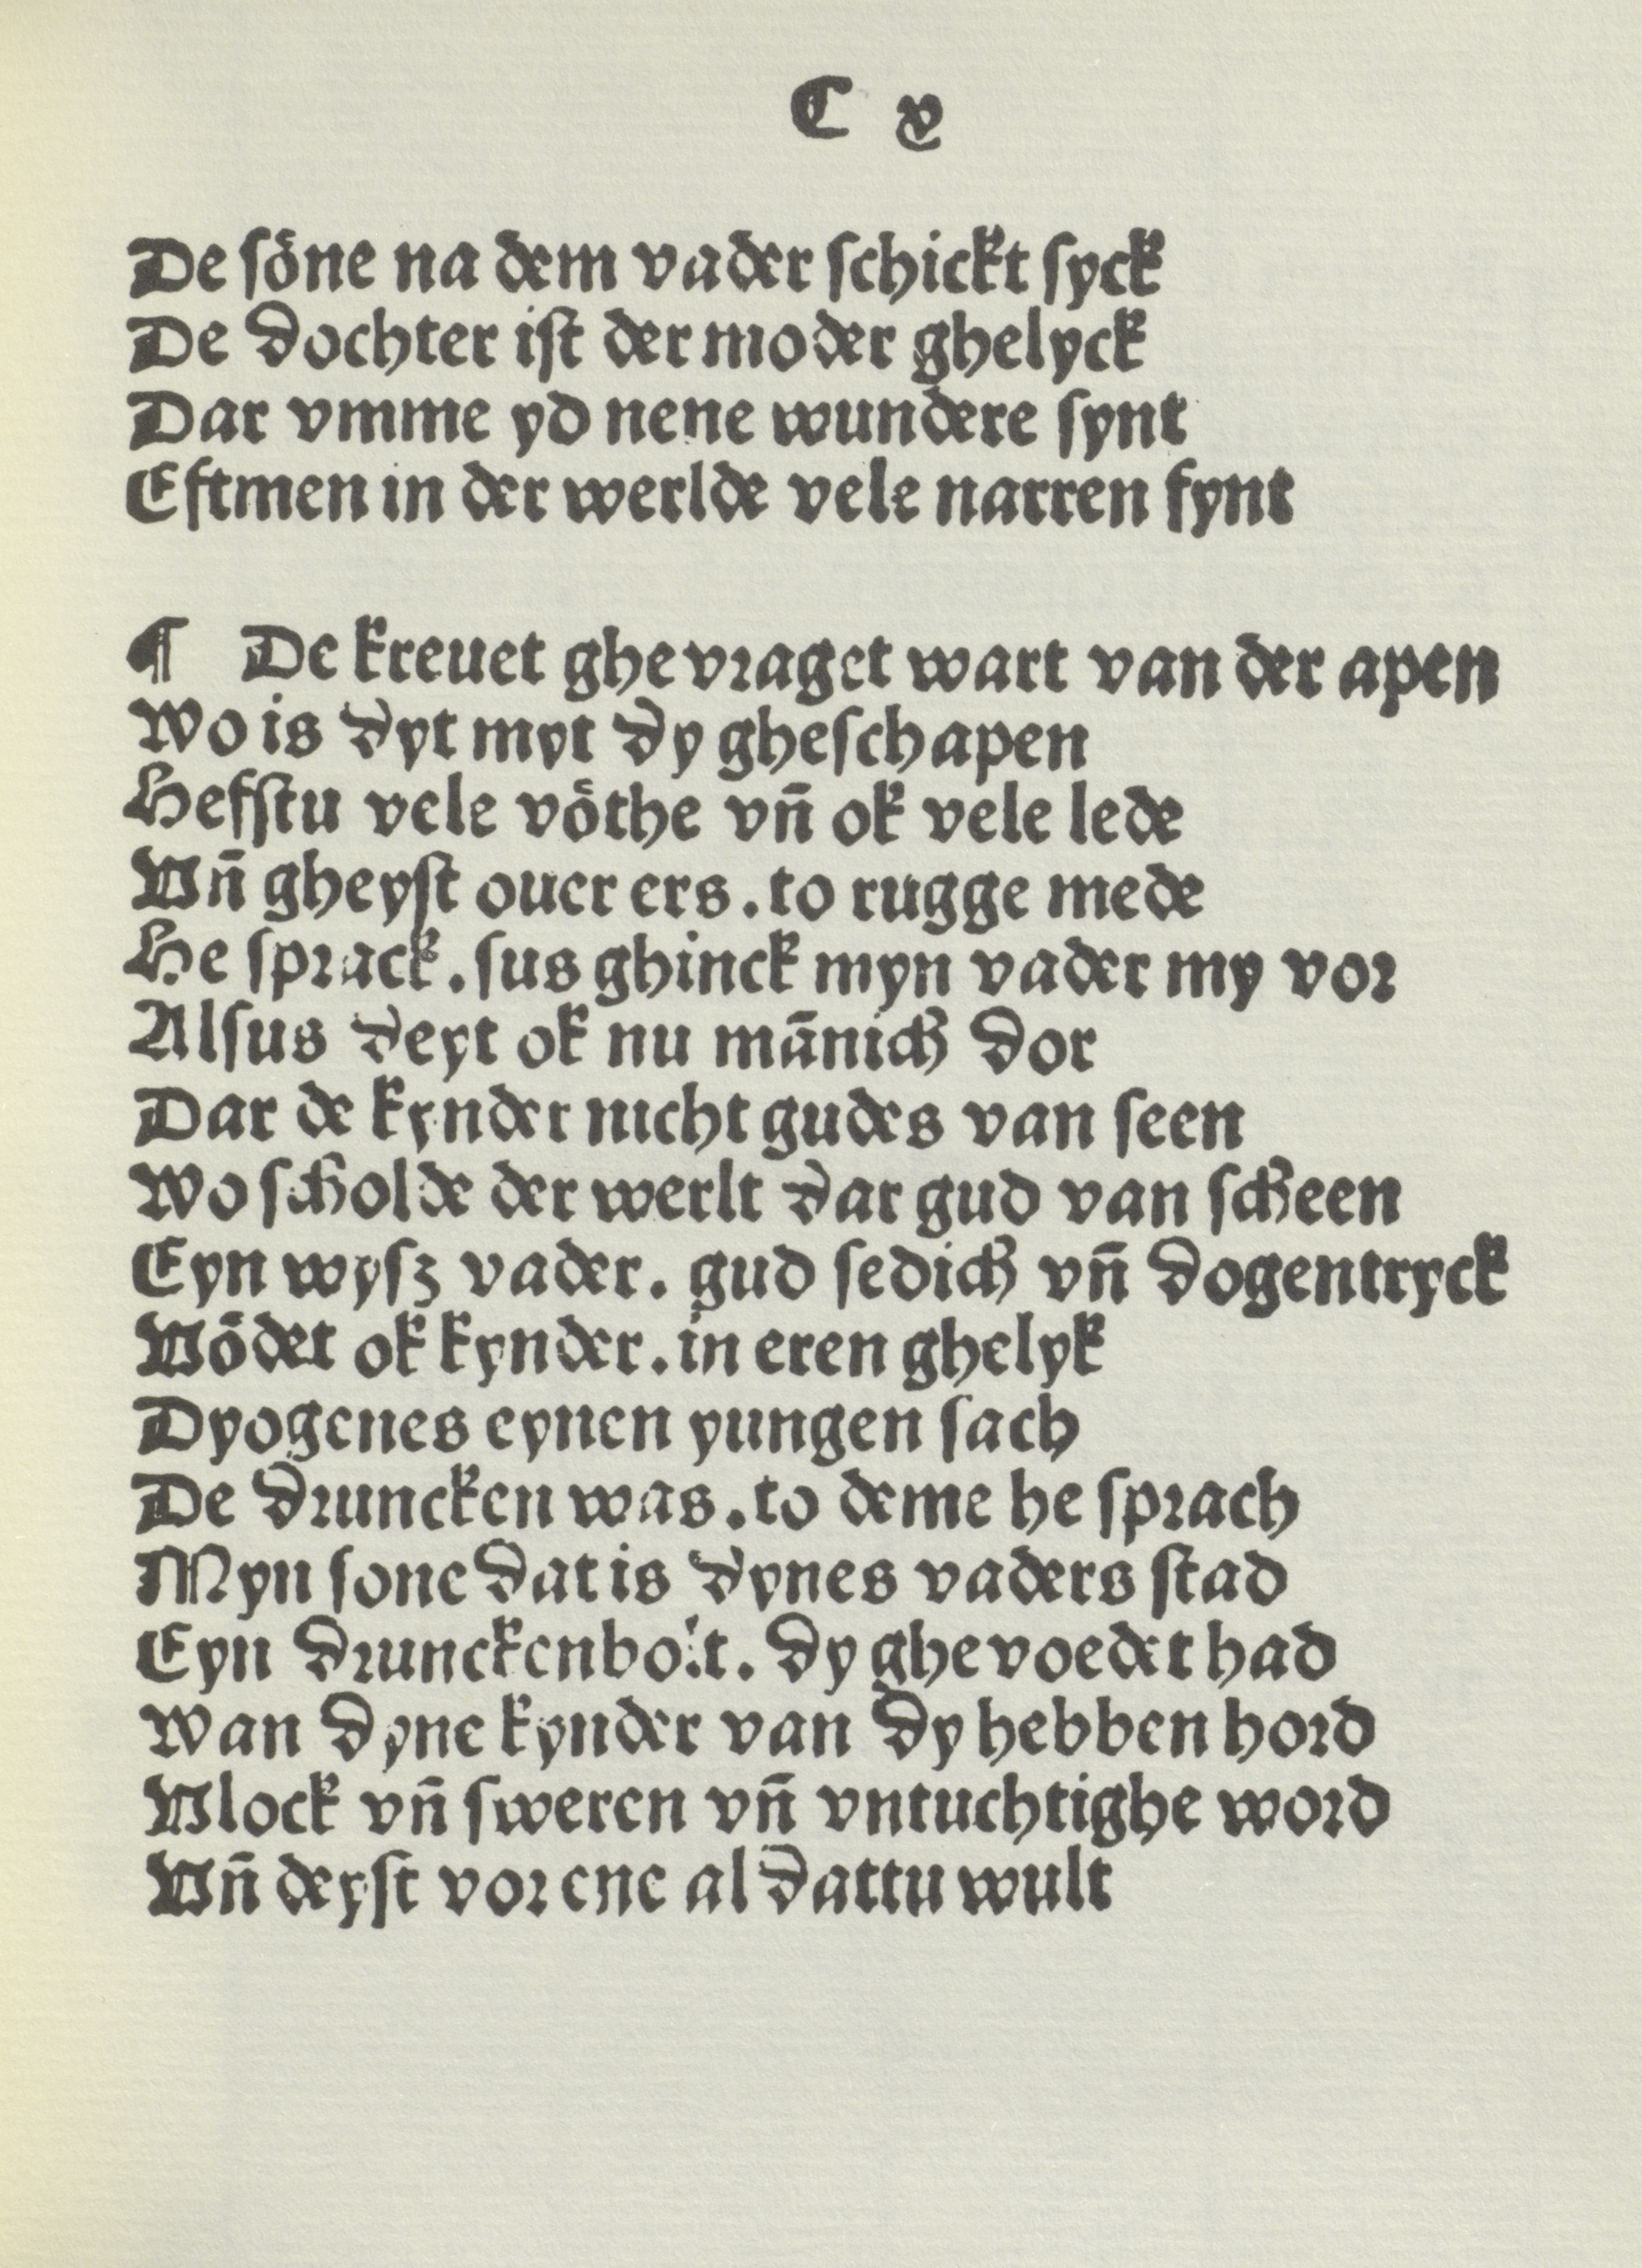 C x
De ſoͤne na dem vader ſchickt ſyck
De dochter iſt der moder ghelyck
Dar vmme yd nene wundere ſynt
Eftmen in der werlde vele narren fynt
¶ De kreuet ghevraget wart van der apen
Wo is dyt myt dy gheſchapen
Hefſtu vele voͤthe vn̄ ok vele lede
Vn̄ gheyſt ouer ers . to rugge mede
He ſprack . ſus ghinck myn vader my vor
Alſus deyt ok nu mānich dor
Dar de kynder nicht gudes van ſeen
Wo ſcholde der werlt dar gud van ſcheen
Eyn wyſz vader . gud ſedich vn̄ dogentryck
Voͤdet ok kynder . in eren ghelyk
Dyogenes eynen yungen ſach
De druncken was . to deme he ſprach
Myn ſone dat is dynes vaders ſtad
Eyn drunckenbolt . dy ghevoedet had
Wan dyne kynder van dy hebben hord
Vlock vn̄ ſweren vn̄ vntuchtighe word
Vn̄ deyſt vor ene al dattu wult